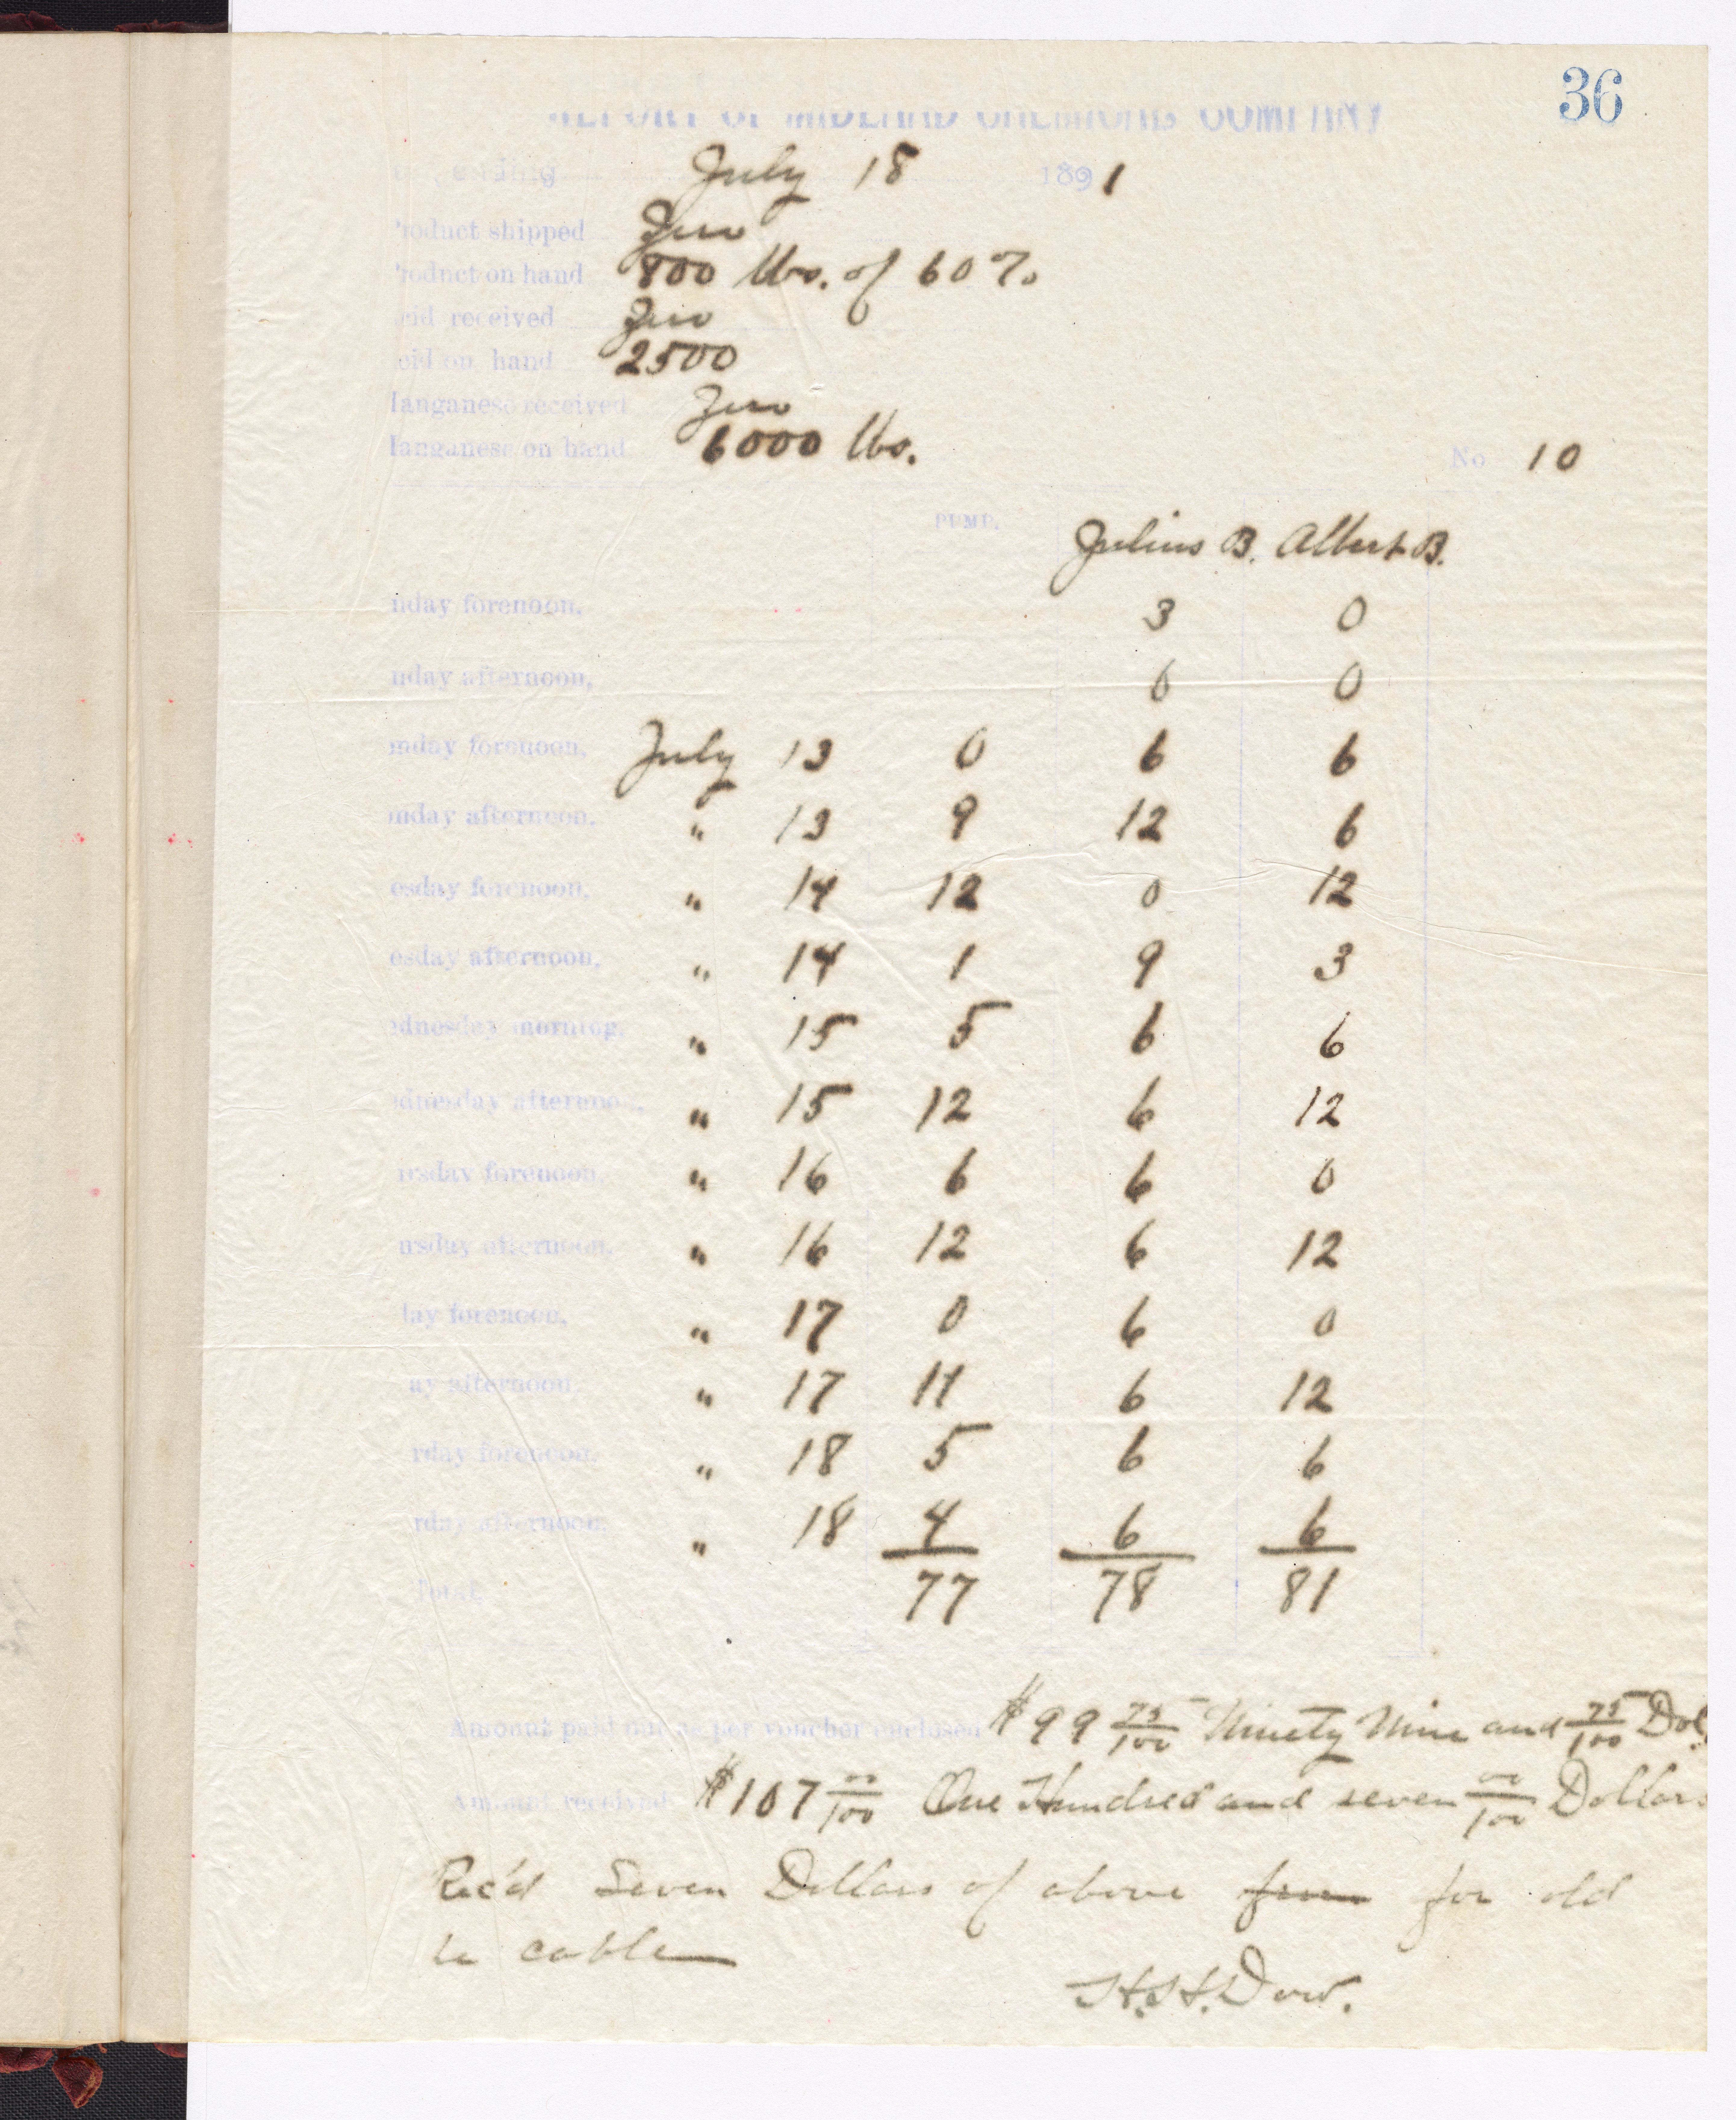 36
REPORT OF MIDLAND CHEMICAL COMPANY
ending July 18 1891
roduct shipped Zero
roduct on hand 800 lbs. of 60%
cid received Zero
cid on hand 2500
langanese received Zero
langanese on hand 6000 lbs.
No 10
PUMP. Julius B. Albert B.
nday forenoon, 3 0
nday afternoon, 0 0
onday forenoon, July 13 0 6 6
onday afternoon, " 13 9 12 6
esday forenoon, " 14 12 0 12
esday afternoon, " 14 1 9 3
dnesday morning, " 15 5 6 6
dnesday afternoon, " 15 12 6 12
rsday forenoon, " 16 6 6 0
ursday afternoon, " 16 12 6 12
day forenoon, " 17 0 6 0
ay afternoon, " 17 11 6 12
rday forenoon, " 18 5 6 6
rday afternoon, " 18 4 6 6
Total, 77 78 81
Amount paid out as per voucher enclosed $99 75/100 Ninety Nine and 75/100 Dol.
Amount received $107 00/100 One Hundred and seven 00/100 Dollars
Rec'd Seven Dollars of above from for old
cable
H.H. Dow.